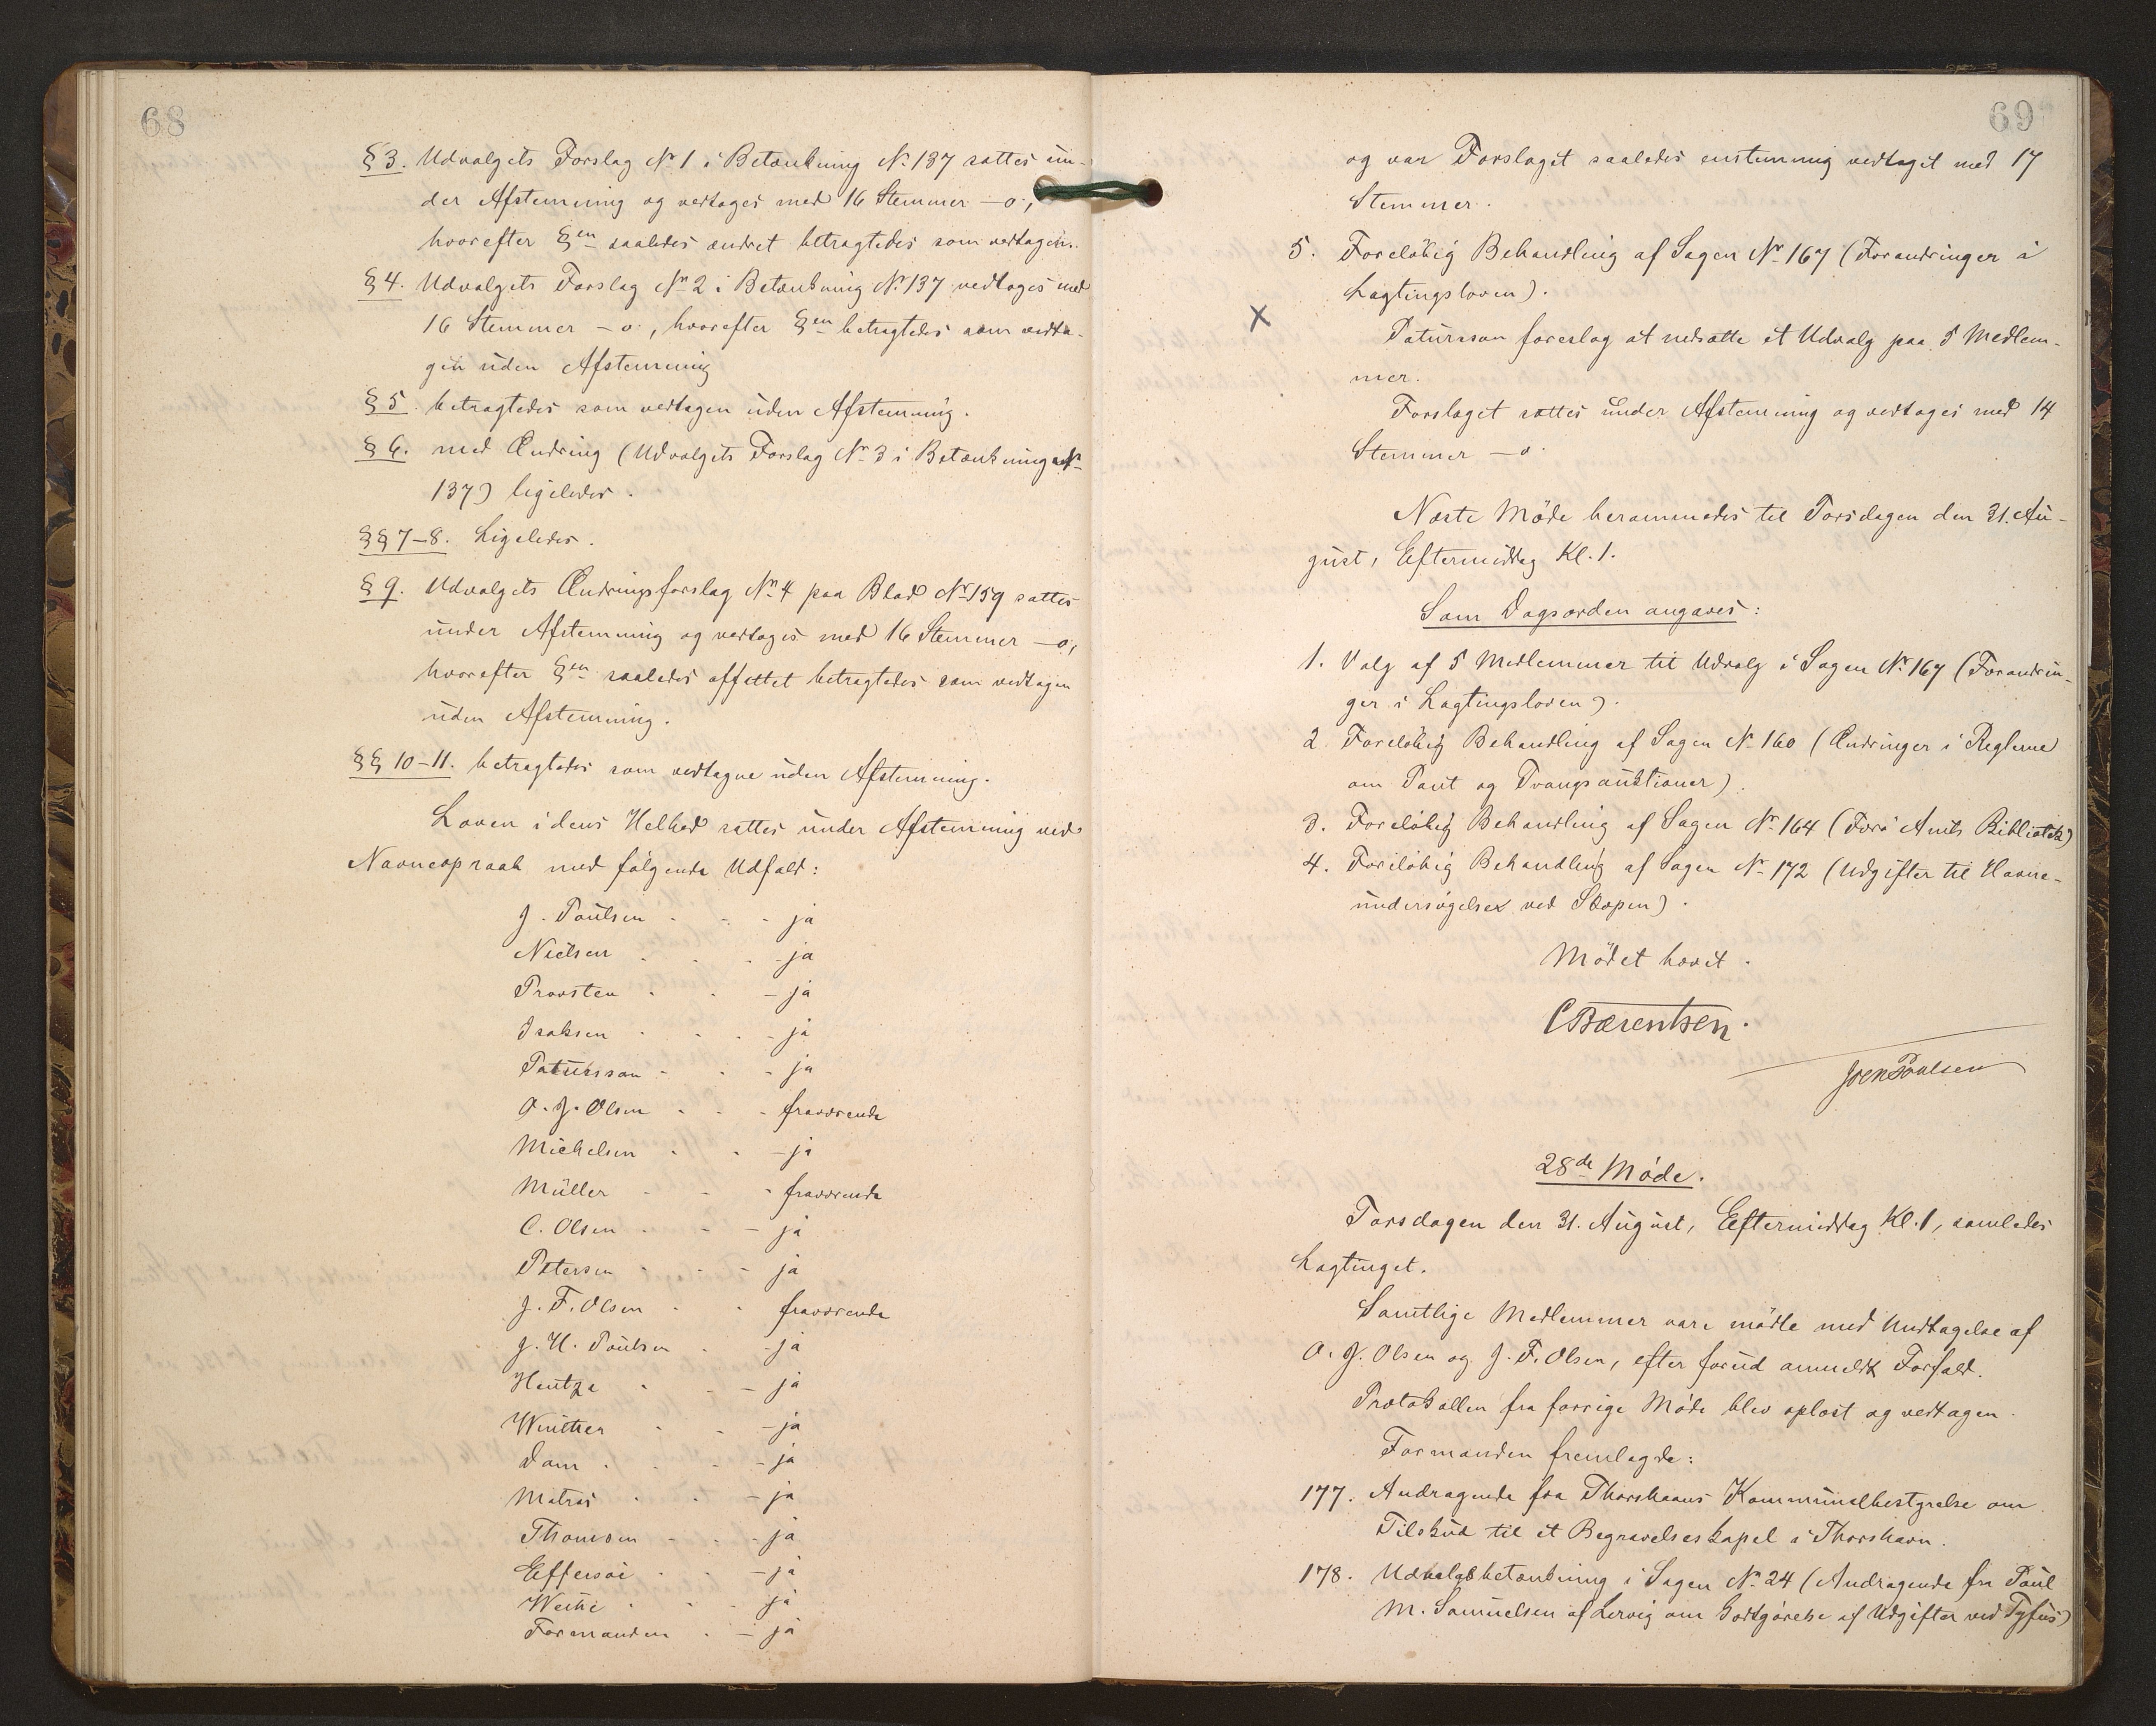 68
§ 3. Udvalgets Forslag Nr 1 i Betænkning Nr 137 sattes un-
der Afstemning og vedtoges med 16 Stemmer - o;,
hvorefter §en saaledes ændret betragtedes som vedtagen.
§ 4. Udvalgets Forslag Nr 2 i Betænkning Nr 137 vedtoges med
16 Stemmer - o:, hvorefter §en betragtedes som vedta-
gen uden Afstemning
§ 5. betragtedes som vedtagen uden Afstemning.
§ 6. med Ændring (Udvalgets Forslag Nr 3 i Betænkning Nr
137) ligeledes.
§§ 7-8. Ligeledes.
§ 9. Udvalgets Ændringsforslag Nr 4 paa Blad Nr 159 sattes
under Afstemning og vedtoges med 16 Stemmer - o;
hvorefter §en saaledes affattet betragtedes som vedtagen
uden Afstemning.
§§ 10-11. betragtedes som vedtagne uden Afstemning.
Loven i dens Helhed sattes under Afstemning ved
Navneopraab med følgende Udfald:
J. Poulsen - - - ja
Nielsen . . - ja
Provsten . . - ja
Isaksen . . - ja
Patursson - . - ja
O. J. Olsen . . - fraværende
Michelsen . . - ja
Müller - - - fraværende
C. Olsen . - - ja
Petersen . - - ja
J. F. Olsen . . fraværende
J. H. Poulsen . - ja
Hentze . . - ja
Winther . . - ja
Dam . . - ja
Matras . . - ja
Thomsen - . - ja
Effersøe . . - ja
Weihe . . . ja
Formanden . - ja
69
og var Forslaget saaledes enstemmig vedtaget med 17
Stemmer.
5. Foreløbig Behandling af Sagen Nr 167 (Forandringer i
Lagtingsloven).
X
Patursson foreslog at nedsætte et Udvalg paa 5 Medlem-
mer.
Forslaget sattes under Afstemning og vedtoges med 14
Stemmer - o.
Næste Møde berammedes til Torsdagen den 31. Au-
gust, Eftermiddag Kl. 1.
Som Dagsorden angaves:
1. Valg af 5 Medlemmer til Udvalg i Sagen Nr 167 (Forandrin-
ger i Lagtingsloven).
2. Foreløbig Behandling af Sagen Nr 160 (Ændringer i Reglerne
om Pant og Tvangsauktioner).
3. Foreløbig Behandling af Sagen Nr 164 (Færø Amts Bibliotek)
4. Foreløbig Behandling af Sagen Nr 172 (Udgifter til Havne-
undersøgelser ved Skopen).
Mødet hævet.
C Bærentsen.
Joen Poulsen
28de Møde.
Torsdagen den 31. August, Eftermiddag Kl. 1, samledes
Lagtinget.
Samtlige Medlemmer vare mødte med Undtagelse af
O. J. Olsen og J. F. Olsen, efter forud anmeldt Forfald.
Protokollen fra forrige Møde blev oplæst og vedtagen.
Formanden fremlagde:
177. Andragende fra Thorshavns Kommunalbestyrelse om
Tilskud til et Begravelseskapel i Thorshavn.
178. Udvalgsbetænkning i Sagen Nr 24 (Andragende fra Poul
M. Samuelsen af Lervig om Godtgørelse af Udgifter ved Tyfus)